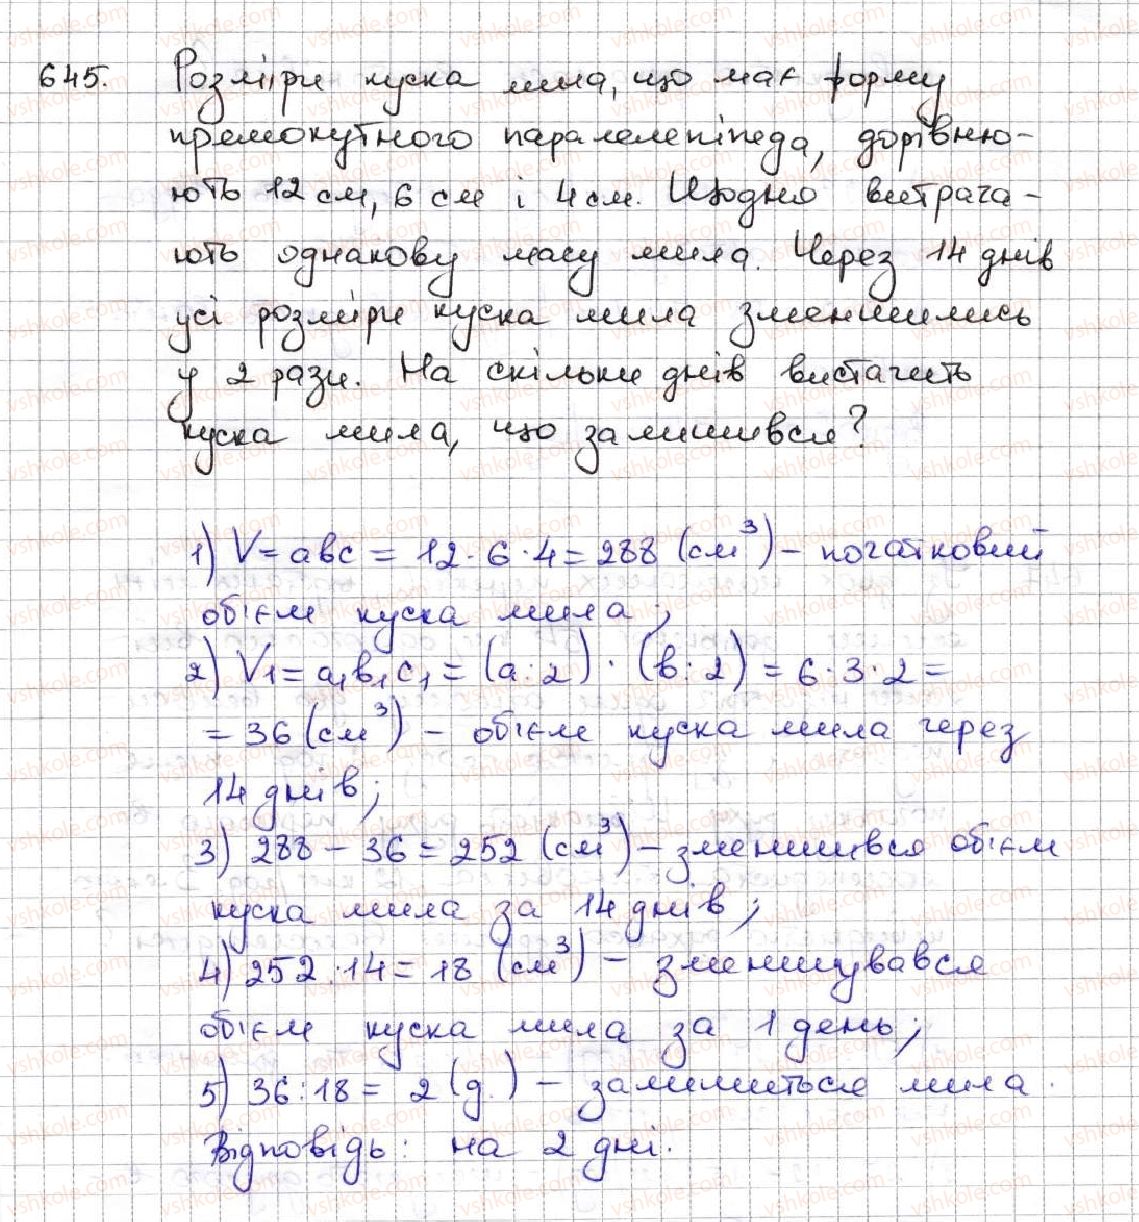 645. Розміри куска мила, що має форму
прямокутного паралелепіпеда, дорівню-
ють 12 см, 6 см і 4 см. Щодня витрача-
ють однакову масу мила. Через 14 днів
усі розміри куска мила зменшились
у 2 рази. На скільки днів вистачить
куска мила, що залишився?
1) V = abc = 12 · 6 · 4 = 288 (см³) – початковий
об'єм куска мила;
2) V₁ = a₁b₁c₁ = (a : 2) · (b : 2) = 6 · 3 · 2 =
= 36 (см³) – об'єм куска мила через
14 днів;
3) 288 – 36 = 252 (см³) – зменшився об'єм
куска мила за 14 днів;
4) 252 : 14 = 18 (см³) – зменшувався
об'єм куска мила за 1 день;
5) 36 : 18 = 2 (д.) – залишиться мила.
Відповідь: на 2 дні.